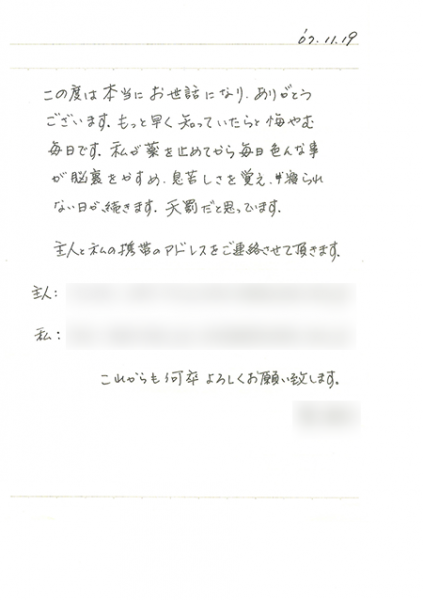 '07.11.19
この度は本当にお世話になり、ありがとう
ございます。もっと早く知っていたらと悔やむ
毎日です。私が薬を止めてから毎日色んな事
が脳裏をかすめ、息苦しさを覚え、寝られ
ない日が続きます。天罰だと思っています。
主人と私の携帯のアドレスをご連絡させて頂きます。
主人:
私:
これからも何卒よろしくお願い致します。